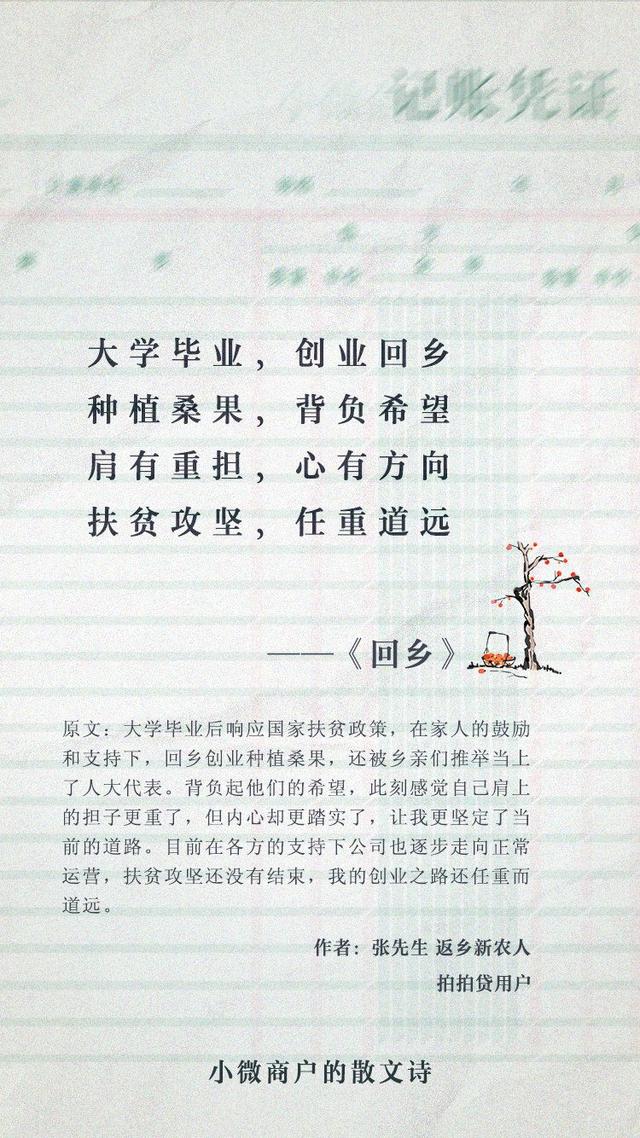 记账凭证
大学毕业，创业回乡
种植桑果，背负希望
肩有重担，心有方向
扶贫攻坚，任重道远
——《回乡》
原文：大学毕业后响应国家扶贫政策，在家人的鼓励
和支持下，回乡创业种植桑果，还被乡亲们推举当上
了人大代表。背负起他们的希望，此刻感觉自己肩上
的担子更重了，但内心却更踏实了，让我更坚定了当
前的道路。目前在各方的支持下公司也逐步走向正常
运营，扶贫攻坚还没有结束，我的创业之路还任重而
道远。
作者：张先生 返乡新农人
拍拍贷用户
小微商户的散文诗